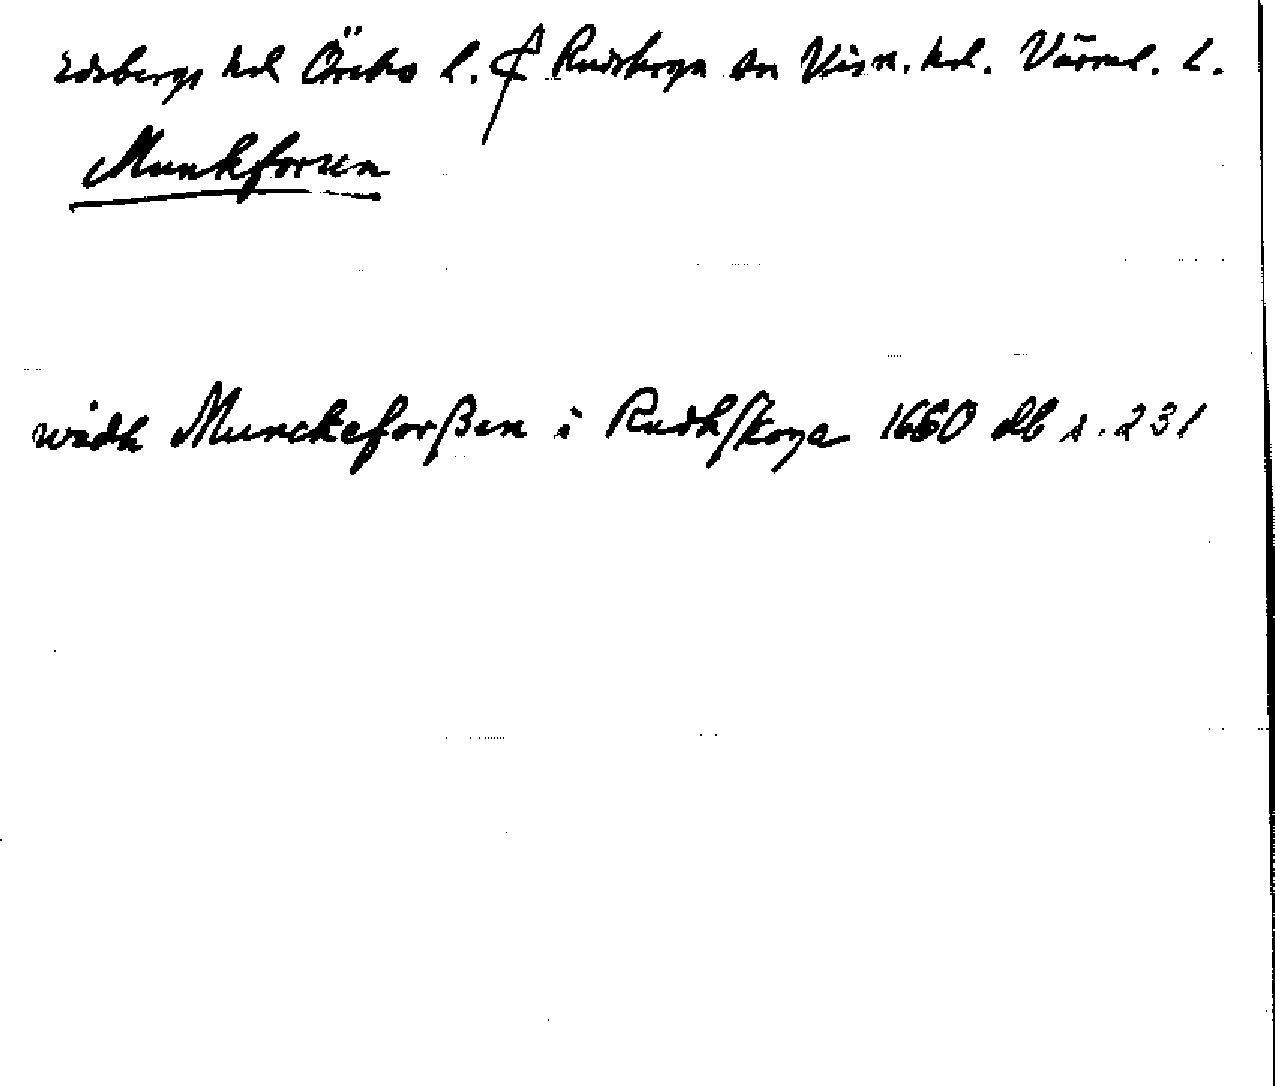 Edsbergs hd Örebro l. ₵ Rudskoga sn Visn. hd. Värml. l.
Munkforsen
widh Munckeforßen i Rudhskoga 1660 db s. 231